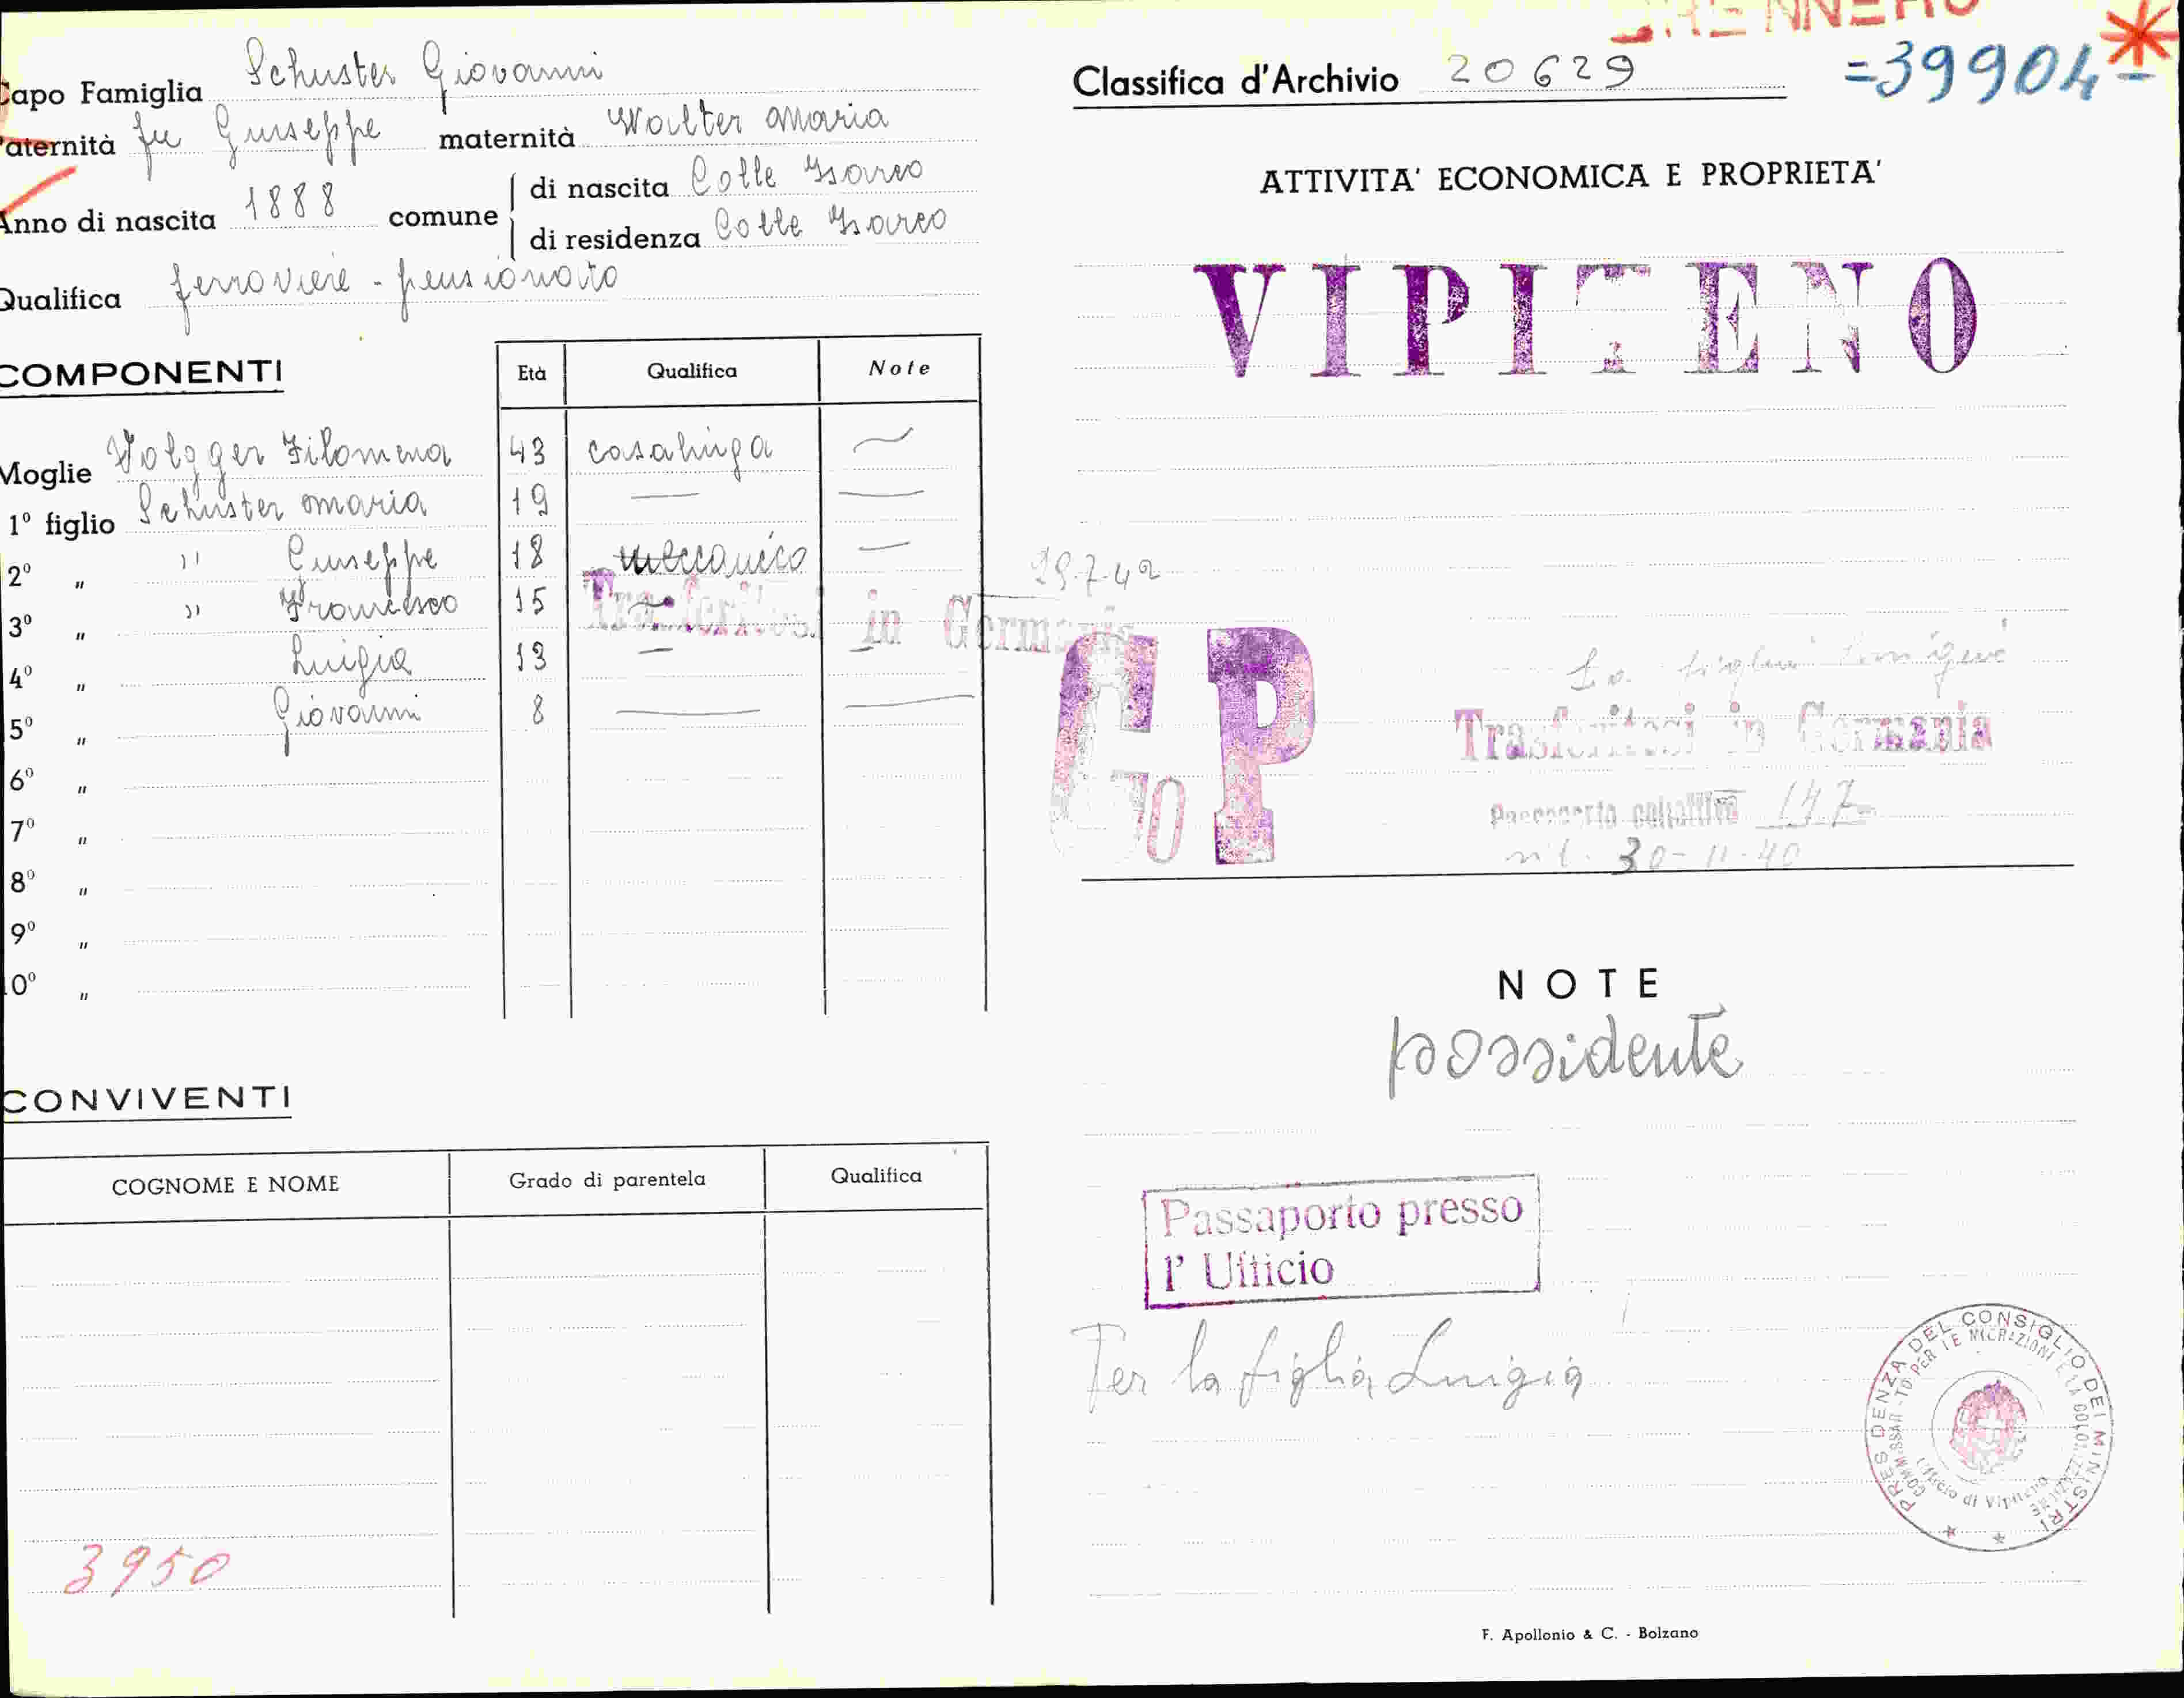 BRENNERO
Capo Famiglia Schuster Giovanni
Paternità fu Giuseppe maternità Walter Maria
Anno di nascita 1888 comune di nascita Colle Isarco
di residenza Colle Isarco
Qualifica ferroviere - pensionato
COMPONENTI
Età Qualifica Note
Moglie Volgger Filomena 43 casalinga
1º figlio Schuster Maria 19
2º " " Giuseppe 18 meccanico
3º " " Francesco 15
Trasferitosi in Germania
4º " Luigia 13
5º " Giovanni 8
6º "
7º "
8º "
9º "
10º "
CONVIVENTI
COGNOME E NOME Grado di parentela Qualifica
3950
Classifica d'Archivio 20629
=39904-
ATTIVITA' ECONOMICA E PROPRIETA'
VIPITENO
29-7-42
P
Trasferitosi in Germania
Passaporto collettivo 147
30-11-40
NOTE
possidente
Passaporto presso
l' Ufficio
Per la figlia Luigia
PRESIDENZA DEL CONSIGLIO DEI MINISTRI
COMMISSAR-TO PER LE MIGRAZIONI E LA COLONIZZAZIONE
Ufficio di Vipiteno
F. Apollonio & C. - Bolzano